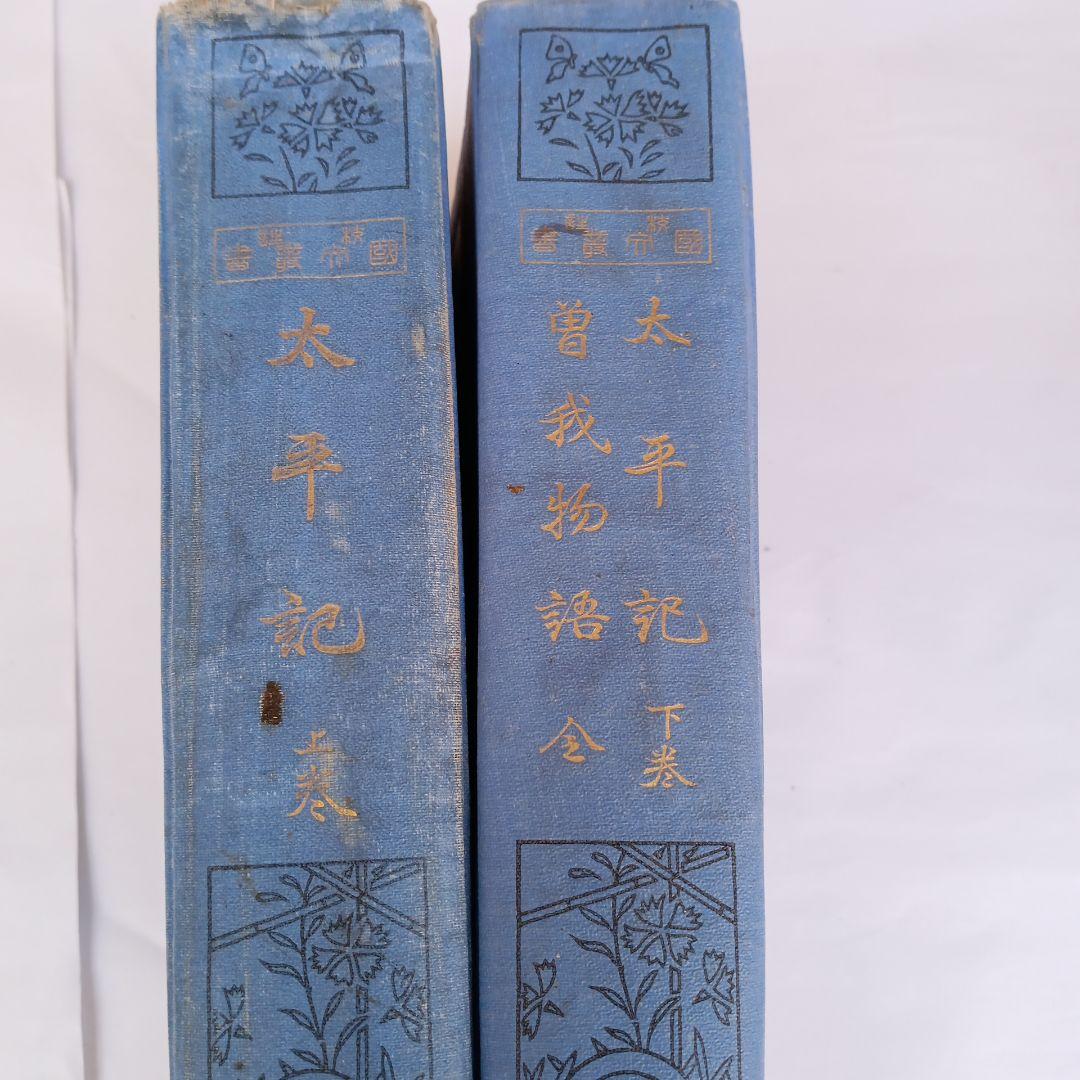 校註
國文叢書
太平記 上巻
校註
國文叢書
太平記 下巻
曽我物語 全